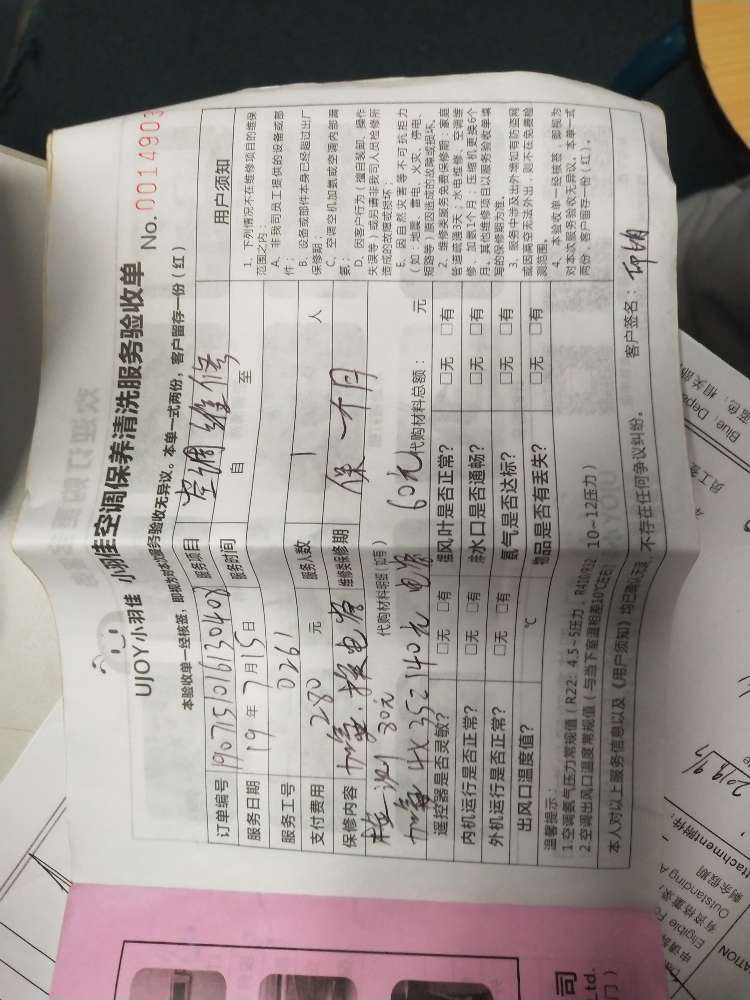 UJOY小羽佳 小羽佳空调保养清洗服务验收单 No.0014903
本验收单一经核签，即视为对本次服务验收无异议。本单一式两份，客户留存一份（红）
订单编号 190715101613040 服务项目 空调维修
服务日期 19年7月15日 服务时间 自 至
服务工号 0261 服务人数 1 人
支付费用 280 元 维修类保修期 保一个月
保修内容 加氟.换电容
代购材料明细(如有) 代购材料总额： 元
检测30元
加氟4X35=140元 电容 60元
遥控器是否灵敏? □无 □有 摆风叶是否正常? □无 □有
内机运行是否正常? □无 □有 排水口是否通畅? □无 □有
外机运行是否正常? □无 □有 氟气是否达标? □无 □有
出风口温度值? ℃ 物品是否有丢失? □无 □有
温馨提示：
1.空调氟气压力常规值（R22：4.5~5压力，R410/R32 10~12压力）
2.空调出风口温度常规值（与当下室温相差10℃左右）
本人对以上服务信息以及《用户须知》均已确认无误，不存在任何争议纠纷。 客户签名：
用户须知
1、下列情况不在维修项目的维保
范围之内：
A、非我司员工提供的设备或部
件；
B、设备或部件本身已经超过出厂
保修期；
C、空调空机加氨或空调内部漏
氨；
D、因客户行为（擅自装卸、操作
失误等）或另请非我司人员检修所
造成的故障或损坏；
E、因自然灾害等不可抗拒力
（如：地震、雷电、火灾、停电、
短路等）原因造成的故障或损坏。
2、维修类服务免费保修期：家庭
管道疏通3天；水电维修、空调维
修、加氨1个月；压缩机更换6个
月。其他维修项目以服务验收单填
写的保修期为准。
3、服务中涉及出外墙如有防盗网
或因高空无法外出，则不在免费检
测范围。
4、本验收单一经核签，即视为
对本次服务验收无异议。本单一式
两份，客户留存一份（红）。
蓝色：相关部
Blue: Depa
员工签
2019.9/5
ttachment附件:
剩余假期
Outstanding A
有资格重获
Eligible Fo
申请
ATION
司
td.
门）